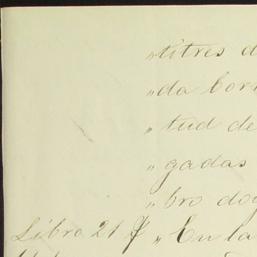 "titres d
"da borr
"tud de
"gadas
"bro do
Libro 21 f "En la